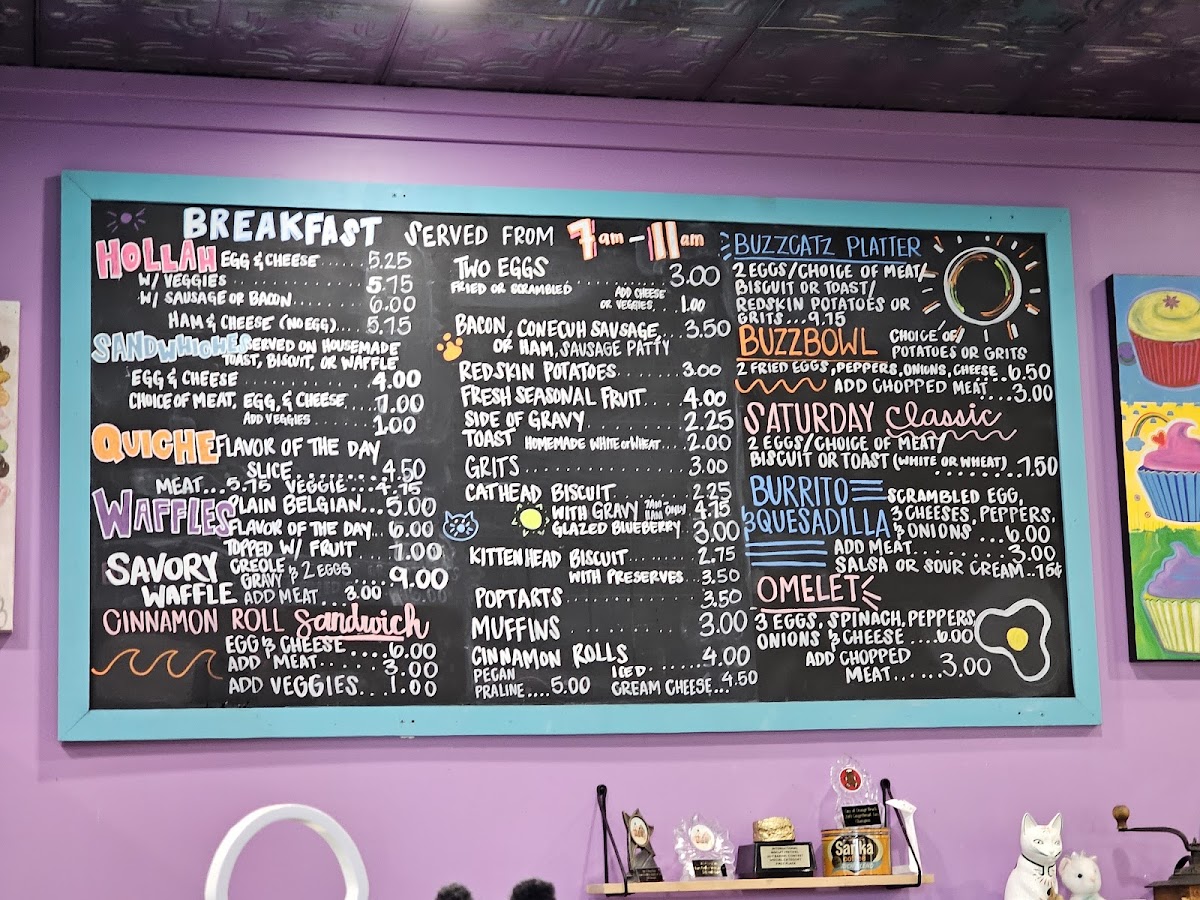 BREAKFAST SERVED FROM 7am - 11am
HOLLAH EGG & CHEESE ...... 5.25
W/ VEGGIES ...... 5.75
W/ SAUSAGE OR BACON ...... 6.00
HAM & CHEESE (NO EGG).... 5.75
SANDWHICHES SERVED ON HOUSEMADE
TOAST, BISCUIT, OR WAFFLE
EGG & CHEESE ...... 4.00
CHOICE OF MEAT, EGG, & CHEESE .... 7.00
ADD VEGGIES ...... 1.00
QUICHE FLAVOR OF THE DAY
SLICE ...... 4.50
MEAT... 5.75 VEGGIE... 4.75
WAFFLES PLAIN BELGIAN... 5.00
FLAVOR OF THE DAY... 6.00
TOPPED W/ FRUIT ... 7.00
SAVORY WAFFLE CREOLE
GRAVY & 2 EGGS ... 9.00
ADD MEAT ... 3.00
CINNAMON ROLL Sandwich
EGG & CHEESE ...... 6.00
ADD MEAT ...... 3.00
ADD VEGGIES... 1.00
TWO EGGS ...... 3.00
FRIED OR SCRAMBLED
ADD CHEESE
OR VEGGIES. 1.00
BACON, CONECUH SAUSAGE ... 3.50
OR HAM, SAUSAGE PATTY
REDSKIN POTATOES ...... 3.00
FRESH SEASONAL FRUIT... 4.00
SIDE OF GRAVY ...... 2.25
TOAST HOMEMADE WHITE or WHEAT... 2.00
GRITS ...... 3.00
CATHEAD BISCUIT ...... 2.25
WITH GRAVY 7AM 11AM ONLY 4.75
GLAZED BLUEBERRY ... 3.00
KITTENHEAD BISCUIT ...... 2.75
WITH PRESERVES... 3.50
POPTARTS ...... 3.50
MUFFINS ...... 3.00
CINNAMON ROLLS
PECAN
PRALINE.... 5.00
ICED ...... 4.00
CREAM CHEESE... 4.50
BUZZCATZ PLATTER
2 EGGS/CHOICE OF MEAT/
BISCUIT OR TOAST/
REDSKIN POTATOES OR
GRITS... 9.75
BUZZBOWL CHOICE OF/
POTATOES OR GRITS
2 FRIED EGGS, PEPPERS, ONIONS, CHEESE... 6.50
ADD CHOPPED MEAT... 3.00
SATURDAY Classic
2 EGGS/CHOICE OF MEAT/
BISCUIT OR TOAST (WHITE OR WHEAT)... 7.50
BURRITO
& QUESADILLA
SCRAMBLED EGG,
3 CHEESES, PEPPERS,
& ONIONS ... 6.00
ADD MEAT ...... 3.00
SALSA OR SOUR CREAM.. 75¢
OMELET
3 EGGS, SPINACH, PEPPERS
ONIONS & CHEESE .... 6.00
ADD CHOPPED
MEAT...... 3.00
Sarika